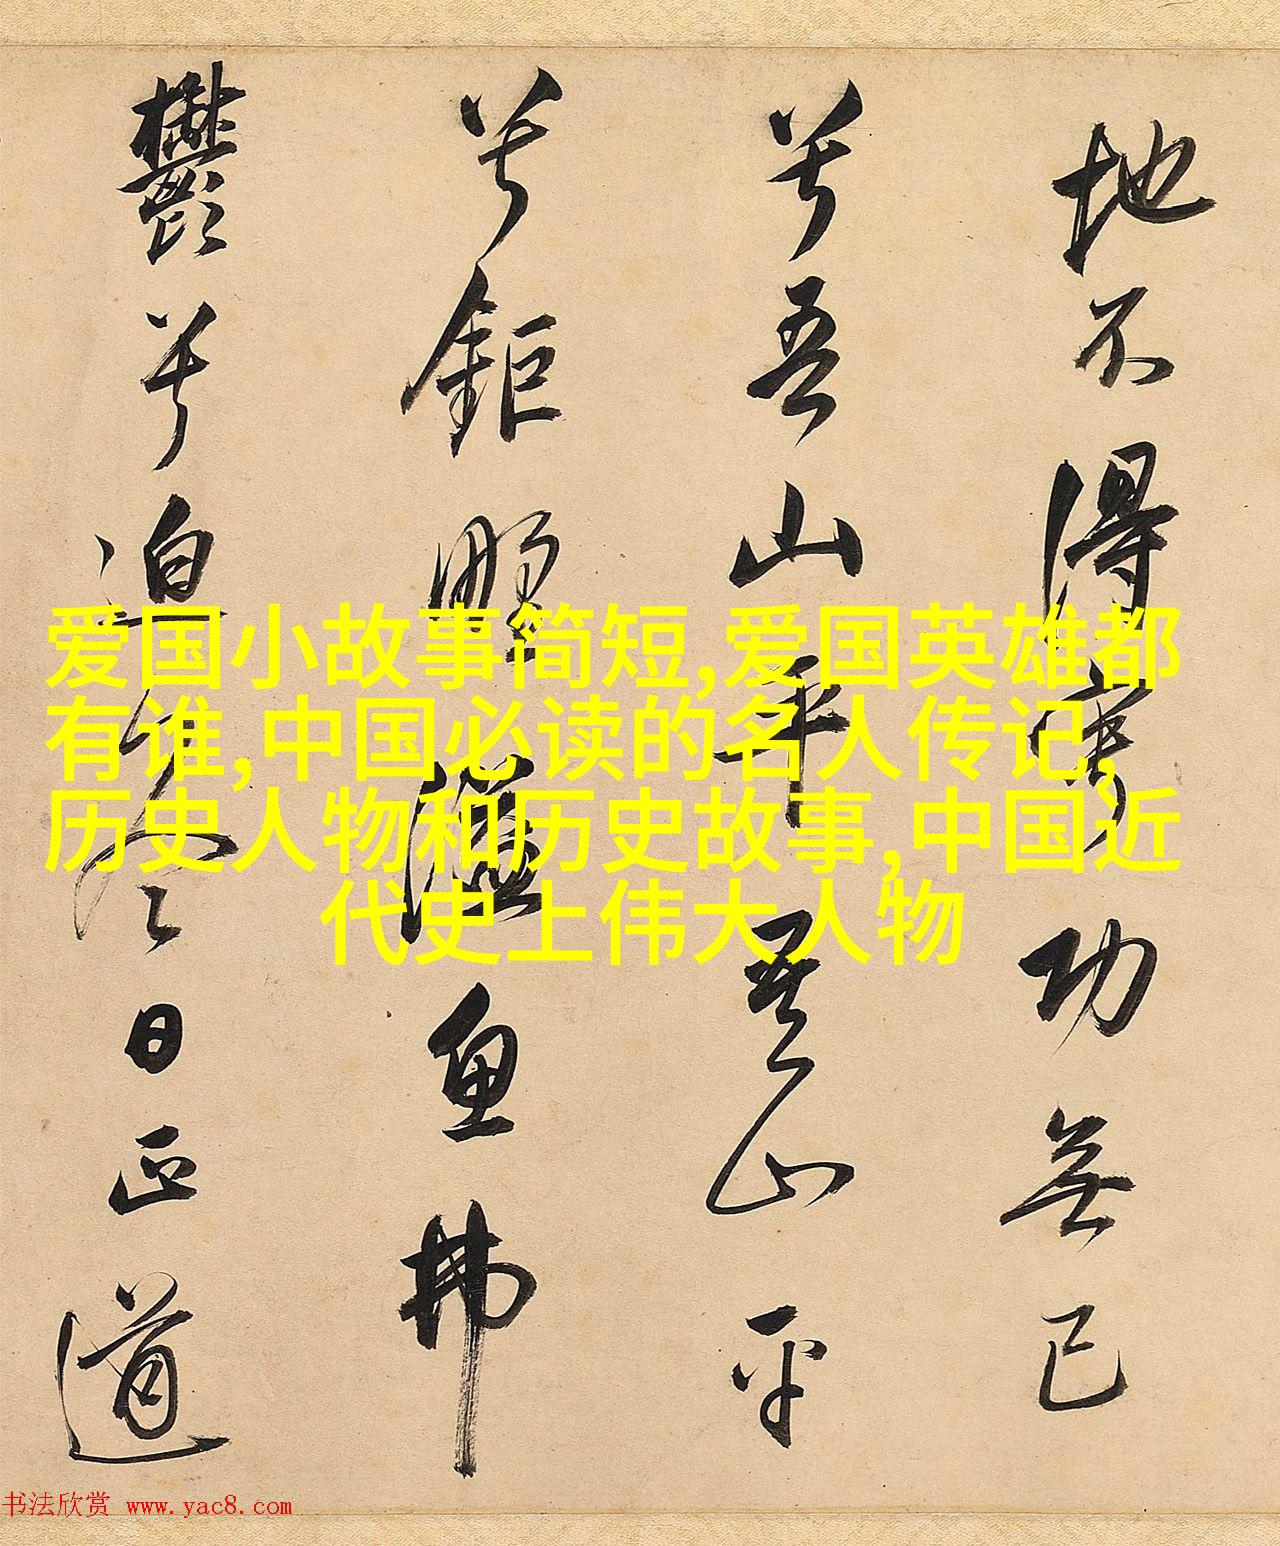 地不得寧功無已
兮吾山平吾山平
兮鉅野溢魚拂
鬱兮迫冬日正道
爱国小故事简短,爱国英雄都
有谁,中国必读的名人传记,
历史人物和历史故事,中国近
代史上伟大人物
书法欣赏 www.yac8.com